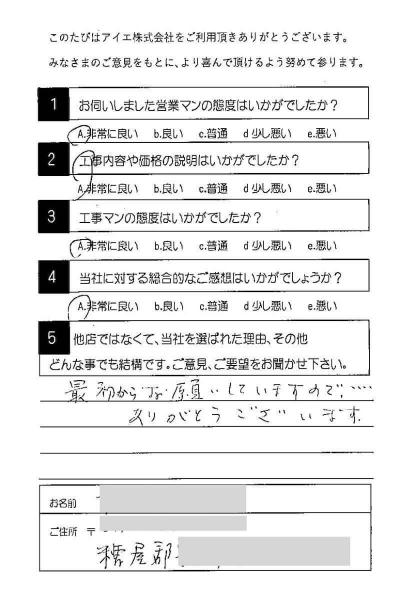 このたびはアイエ株式会社をご利用頂きありがとうございます。
みなさまのご意見をもとに、より喜んで頂けるよう努めて参ります。
1 お伺いしました営業マンの態度はいかがでしたか？
A.非常に良い b.良い c.普通 d 少し悪い e.悪い
2 工事内容や価格の説明はいかがでしたか？
A.非常に良い b.良い c.普通 d 少し悪い e.悪い
3 工事マンの態度はいかがでしたか？
A.非常に良い b.良い c.普通 d 少し悪い e.悪い
4 当社に対する総合的なご感想はいかがでしょうか？
A.非常に良い b.良い c.普通 d 少し悪い e.悪い
5 他店ではなくて、当社を選ばれた理由、その他
どんな事でも結構です。ご意見、ご要望をお聞かせ下さい。
最初からお願いしていますので、….
ありがとうございます.
お名前
ご住所 〒
糟屋郡